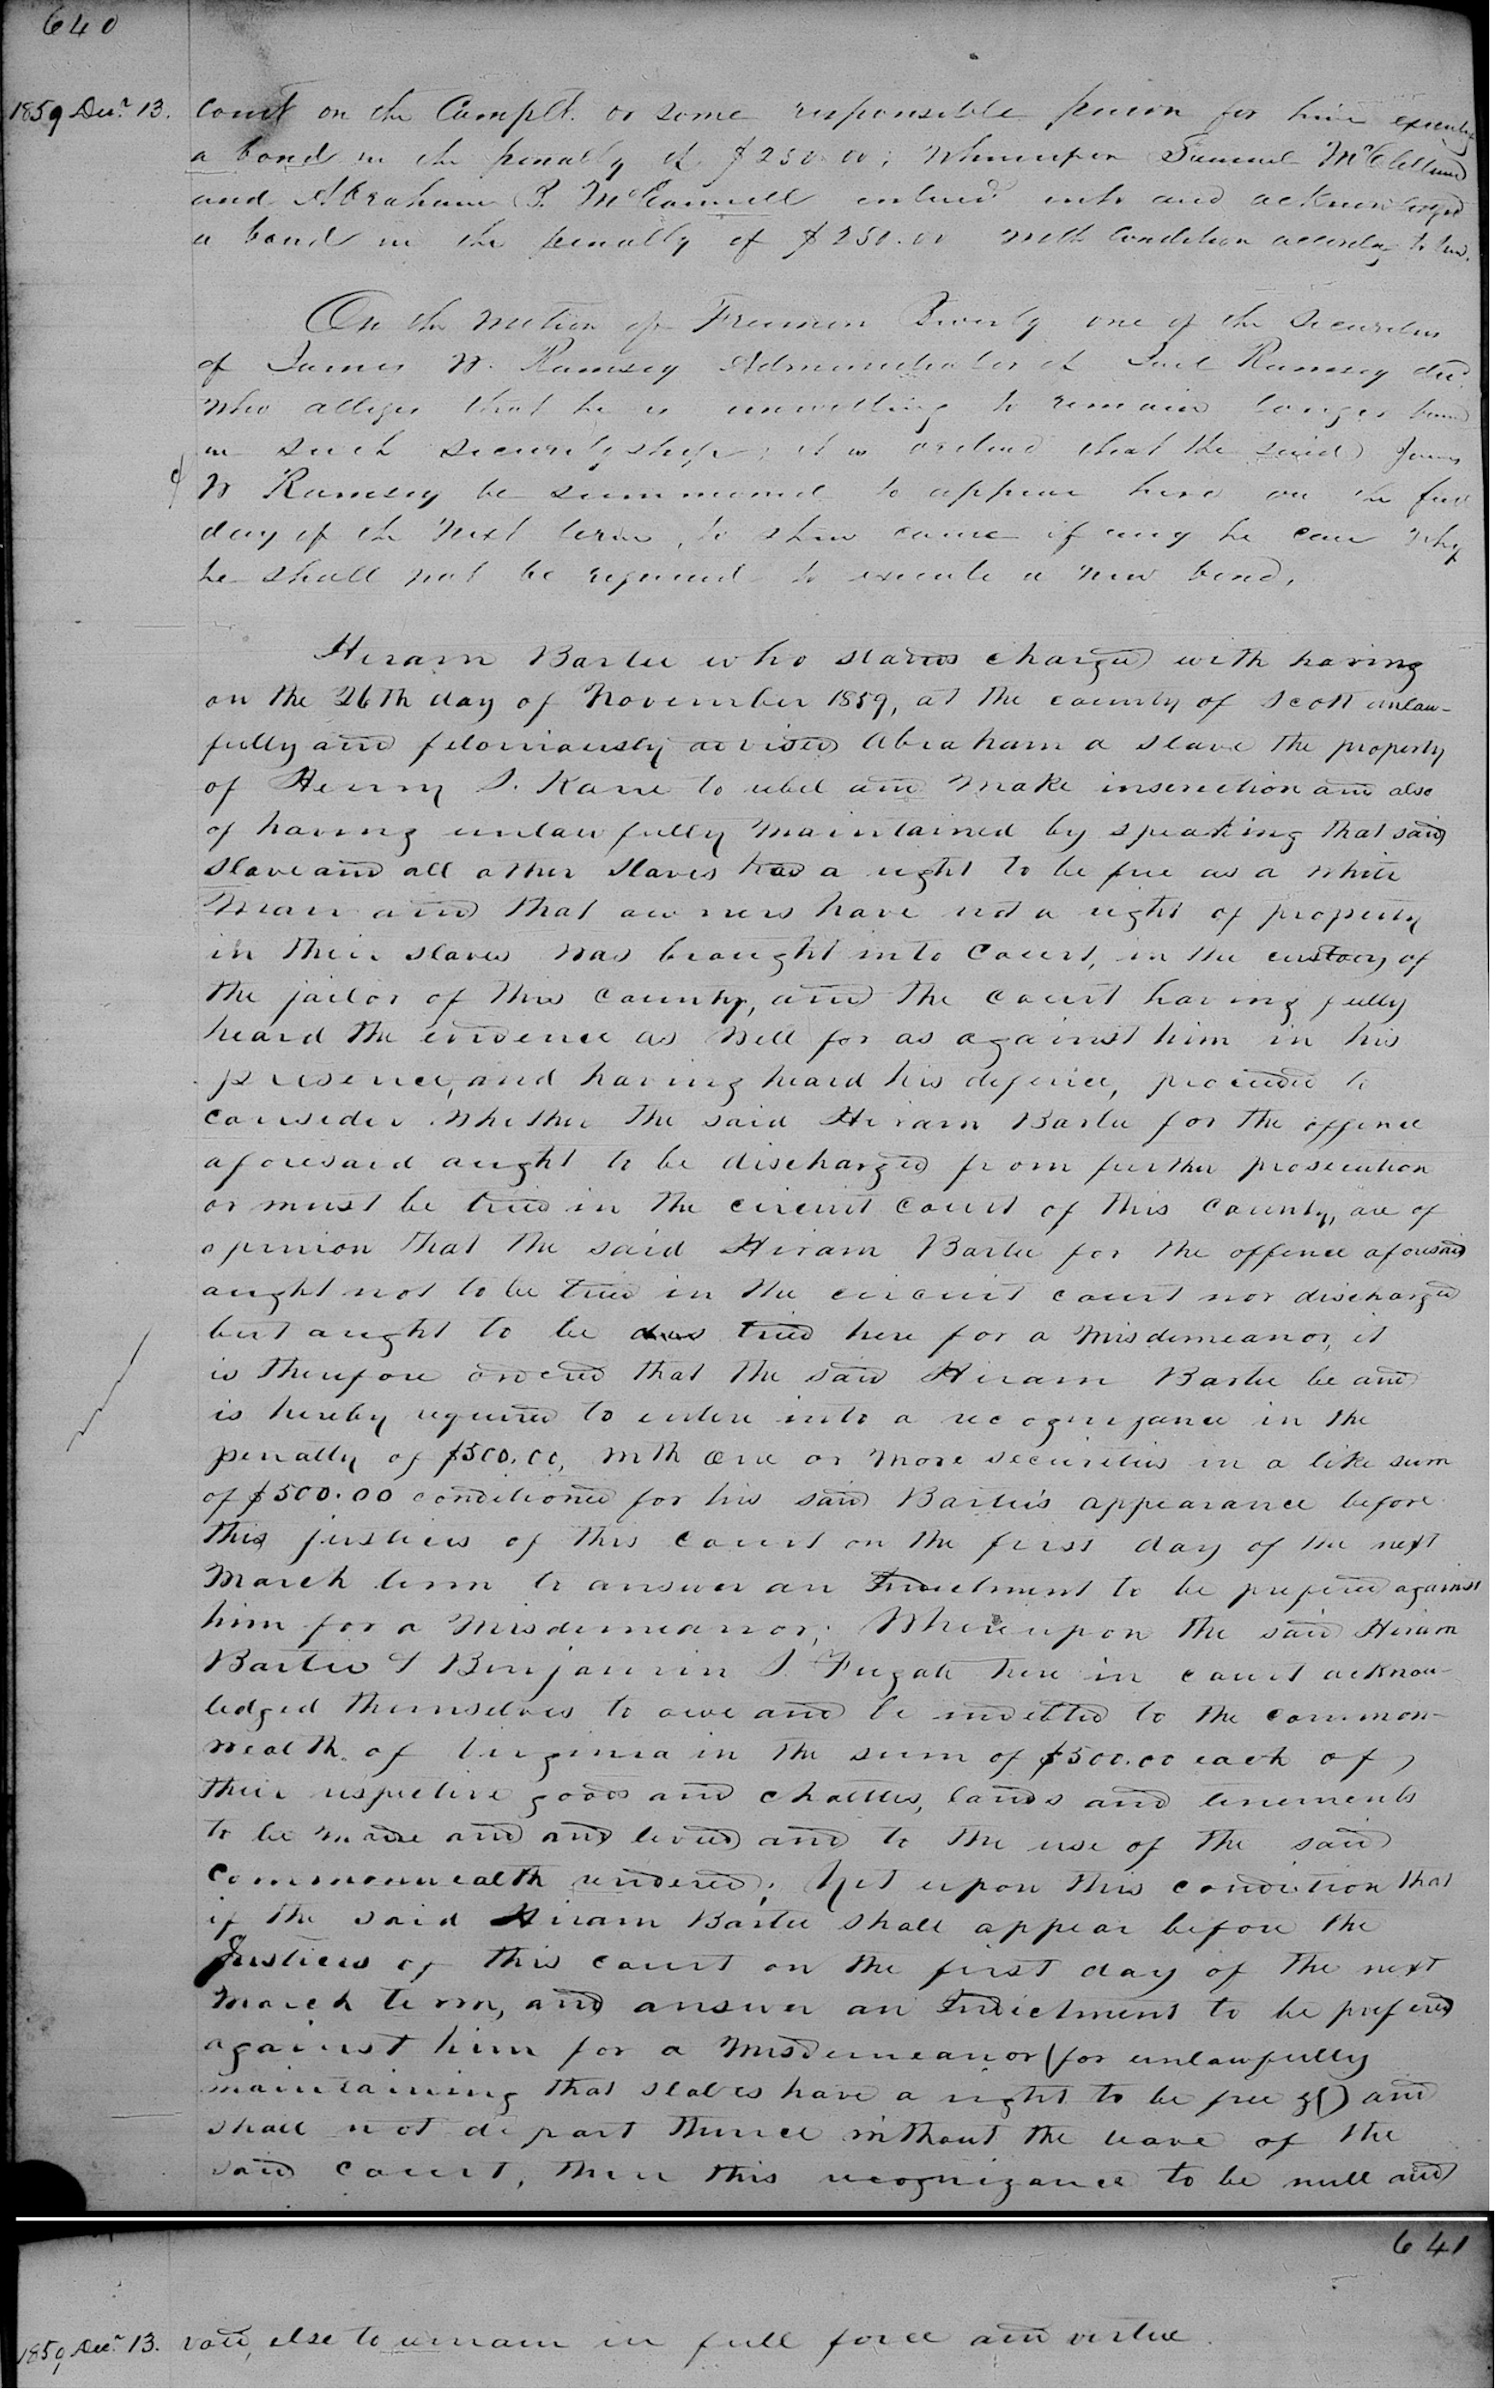 640
1859 Decr. 13. court on the Complt. or some responsible person for him executing
a bond in the penalty of $250.00; Whereupon Samuel McClelland
and Abraham P. McConnell entered into and acknowledged
a bond in the penalty of $250.00 with Condition according to law.
On the motion of Freeman one of the Securities
of James W. Ramsey Administrator of Joel Ramsey decd.
who alleges that he is unwilling to remain longer bound
in such securityship; it is ordered that the said James
W Ramsey be summoned to appear here on the first
day of the next term, to shew cause if any he can why
he shall not be required to execute a new bond.
Hiram Bartee who stands charged with having
on the 26th day of November 1859, at the county of Scott unlaw-
fully and feloniously advised Abraham a slave the property
of Henry S. Kane to rebel and make insurrection and also
of having unlawfully maintained by speaking that said
slave and all other slaves had a right to be free as a white
man and that owners have not a right of property
in their slaves was brought into Court, in the custody of
the jailor of this county, and the court having fully
heard the evidence as well for as against him in his
presence, and having heard his defence, proceeded to
consider whether the said Hiram Bartee for the offence
aforesaid aught to be discharged from further prosecution
or must be tried in the circuit court of this county, are of
opinion that the said Hiram Bartee for the offence aforesaid
aught not to be tried in the circuit court nor discharged
but aught to be tried here for a misdemeanor, it
is therefore ordered that the said Hiram Bartee be and
is hereby required to enter into a recognizance in the
penalty of $500.00, with one or more securities in a like sum
of $500.00 conditioned for his said Bartee's appearance before
this justices of this court on the first day of the next
March term to answer an Indictment to be prefered against
him for a misdemeanor; Whereupon the said Hiram
Bartee & Benjamin S. Fugate here in court acknow-
ledged themselves to owe and be indebted to the common-
wealth of Virginia in the sum of $500.00 each of
their respective goods and chattles, lands and tenements
to be made and and levied and to the use of the said
commonwealth rendered; Yet upon this condition that
if the said Hiram Bartee shall appear before the
Justices of this court on the first day of the next
March term, and answer an Indictment to be prefered
against him for a misdemeanor (for unlawfully
maintaining that slaves have a right to be free &) and
shall not depart thence without the leave of the
said court, then this recognizance to be null and
641
1859 Decr. 13. void, else to remain in full force and virtue.